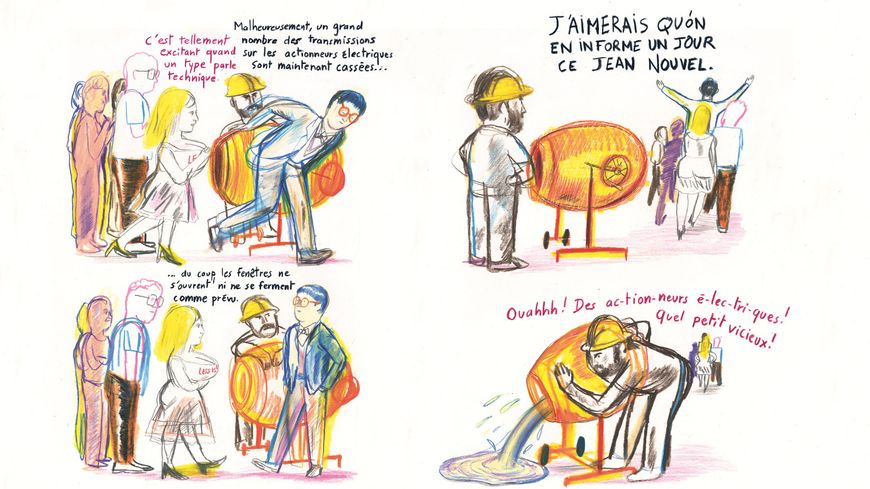 C'est tellement
excitant quand
un type parle
technique.
Malheureusement, un grand
nombre des transmissions
sur les actionneurs électriques
sont maintenant cassées...
LE
... du coup les fenêtres ne
s'ouvrent ni ne se ferment
comme prévu.
LESS IS
J'AIMERAIS QU'ÓN
EN INFORME UN JOUR
CE JEAN NOUVEL.
Ouahhh! Des ac-tion-neurs é-lec-tri-ques!
Quel petit vicieux!